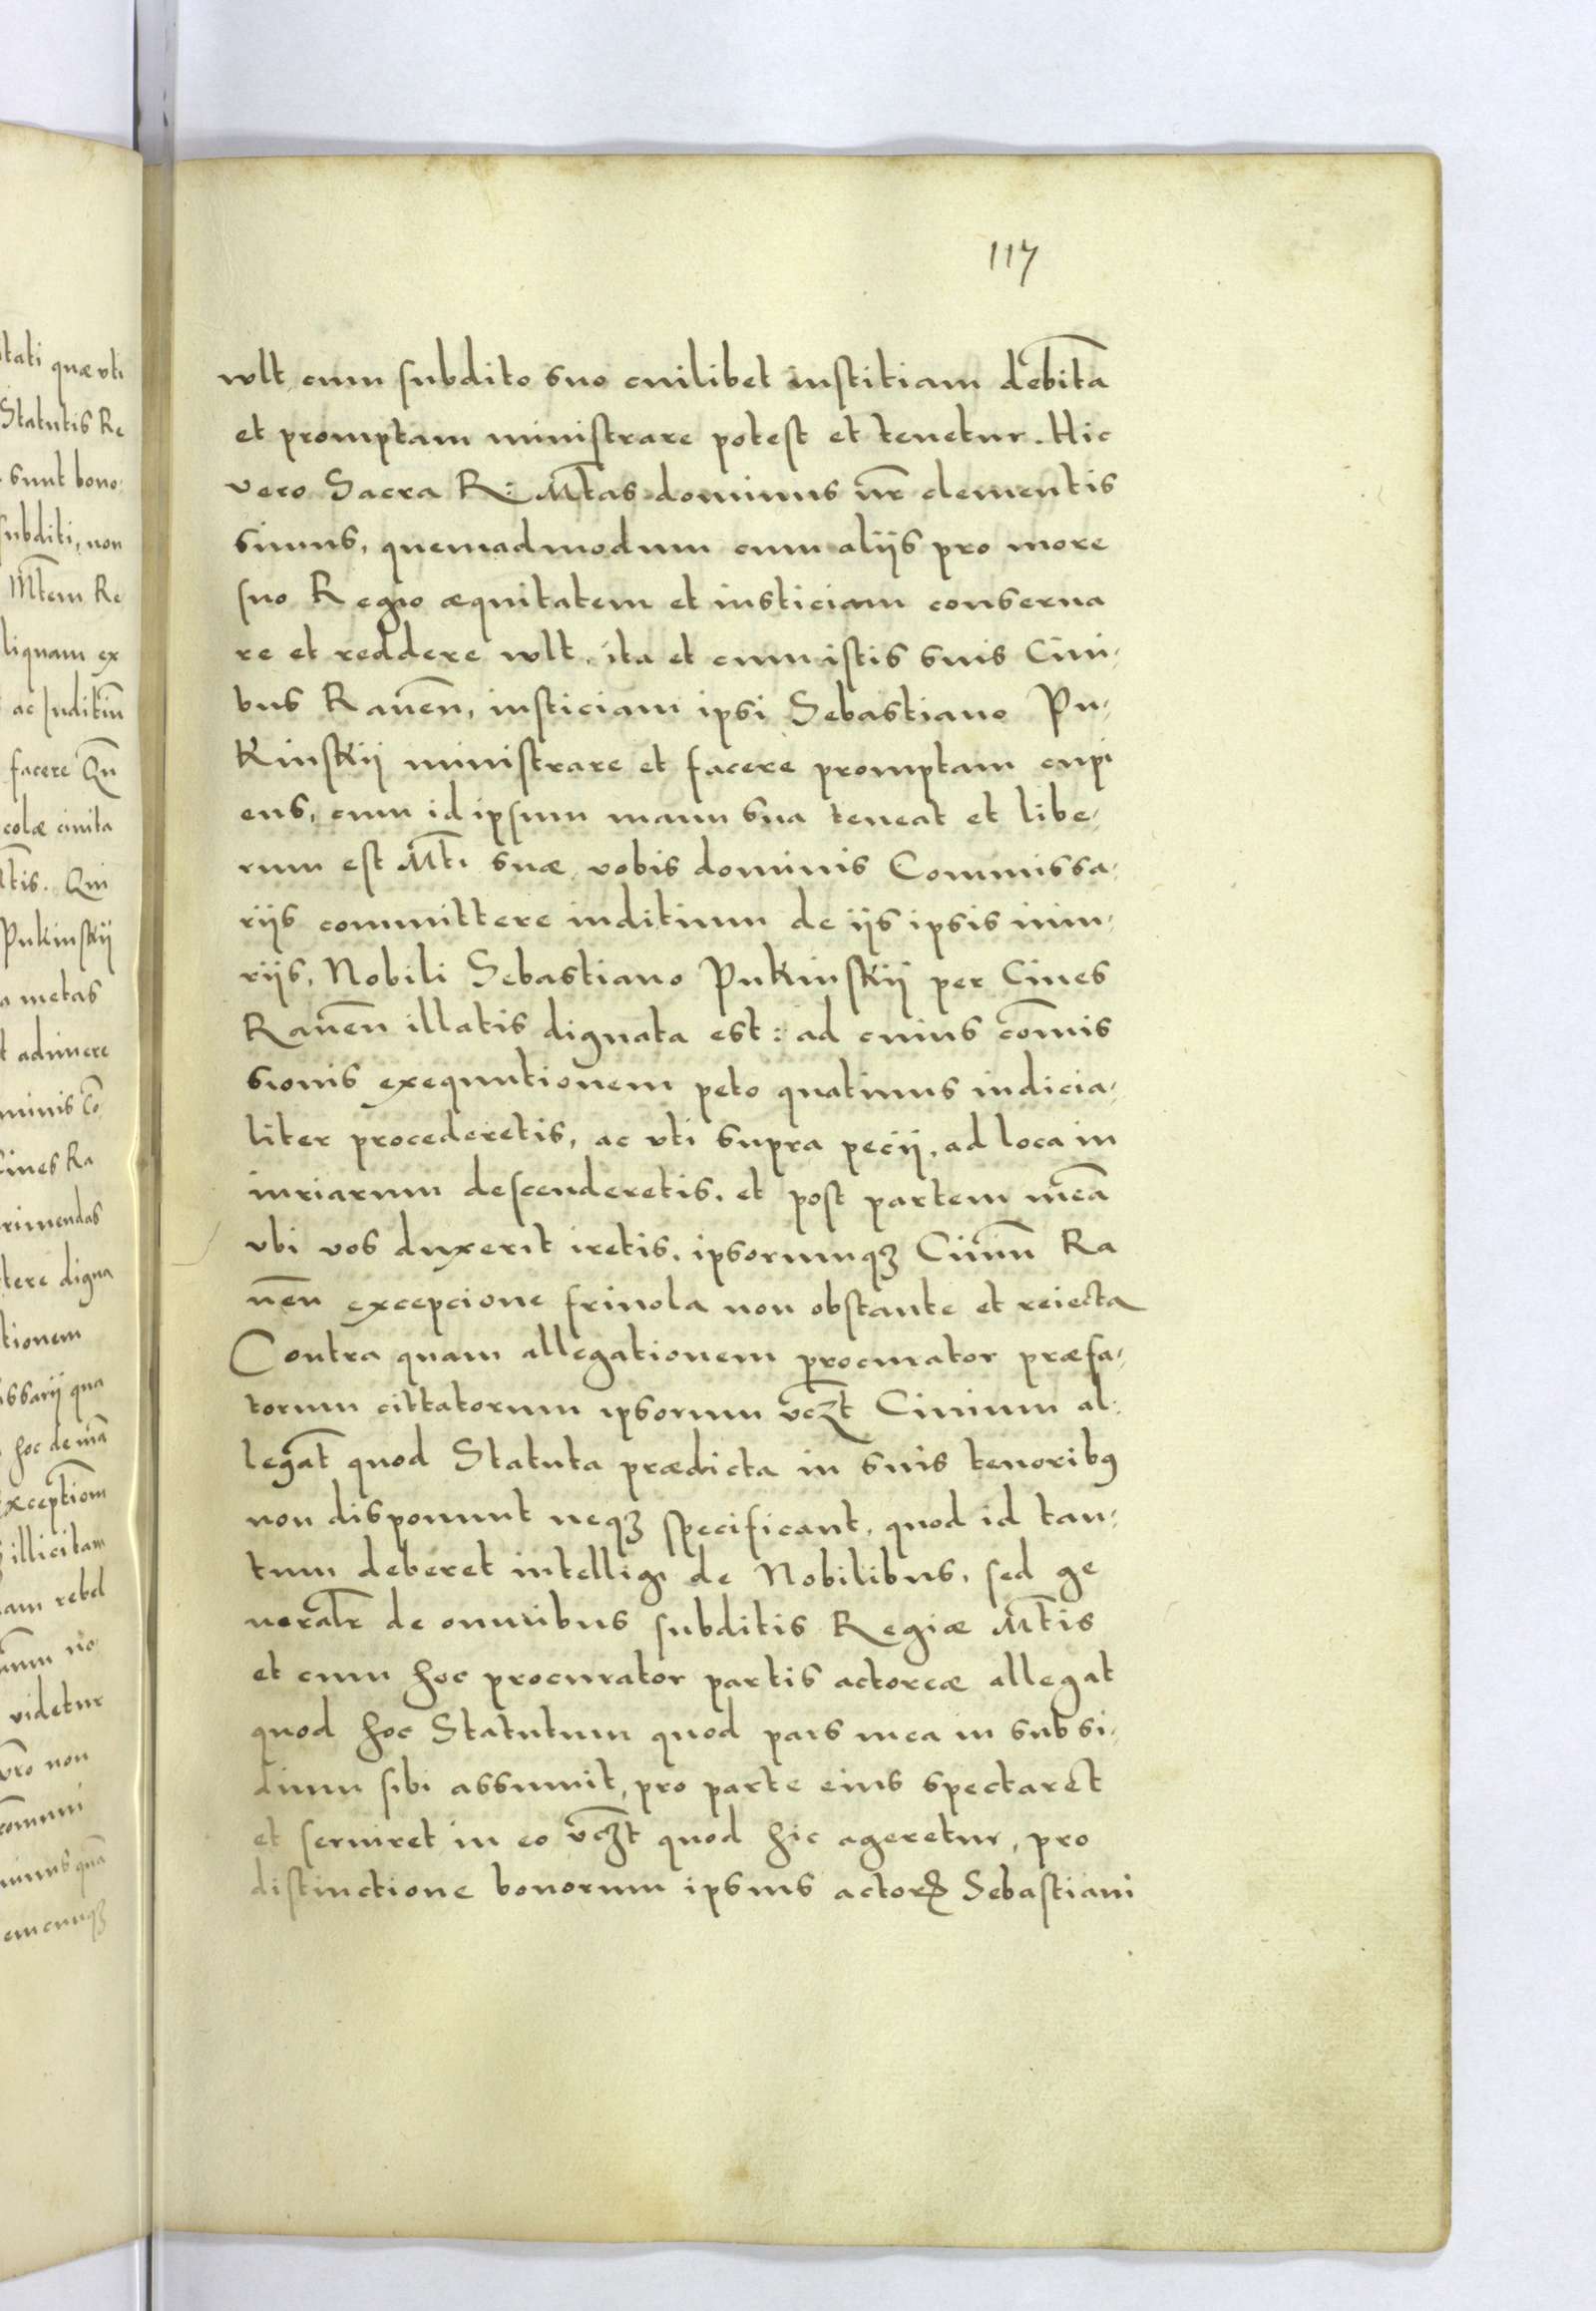 117
wlt cum subdito suo cuilibet iustitiam debitā
et promptam ministrare potest et tenetur. Hic
vero Sacra R: Mt̄as dominus nr̄ clementis
simus, quemadmodum cum aliis pro more
suo Regio æquitatem et iusticiam conserua
re et reddere wlt, ita et cum istis suis Ciui-
bus Raueñ, iusticiam ipsi Sebastiano Pu-
Kinskii ministrare et facere promptam cupi
ens, cum id ipsum manu sua teneat et libe-
rum est Mt̄i suæ vobis dominis Commissa-
riis committere iuditium de iis ipsis iniu-
riis, Nobili Sebastiano Pukinskii per Ciues
Raueñ illatis dignata est: ad cuius com̄is
sionis exequutionem peto quatinus iudicia-
liter procederetis, ac vti supra pecii, ad loca in
iuriarum descenderetis, et post partem meā
vbi vos duxerit iretis, ipsorumqꝫ Ciuiū Ra
ueñ excepcione friuola non obstante et reiecta
Contra quam allegationem procurator præfa-
torum cittatorum ipsorum vcꝫt̄ Ciuium al-
legat̄ quod Statuta prædicta in suis tenoribꝰ
non disponunt neqꝫ specificant, quod id tan-
tum deberet intelligi de Nobilibus, sed ge
neralr̄ de omnibus subditis Regiæ Mt̄is
et cum hoc procurator partis actoreæ allegat
quod hoc Statutum quod pars mea in subsi-
dium sibi assumit, pro parte eius spectaret
et seruiret in eo vcꝫt̄ quod hic ageretur, pro
distinctione bonorum ipsius actorꝭ Sebastiani
tati quæ vti
Statutis Re
sunt bono
subditi, non
Mt̄em Re
liquam ex
ac Juditiū
facere Qū
colæ ciuita
t̄is. Qui
Pukinskii
a metas
t adimere
minis Cō
Ciues Ra
rimendas
tere digna
tionem
issarii qua
hoc de mā
exceptiom̄
illicitam
am rebel
no
videtur
vr̄o non
com̄uni
quā
emcunqꝫ